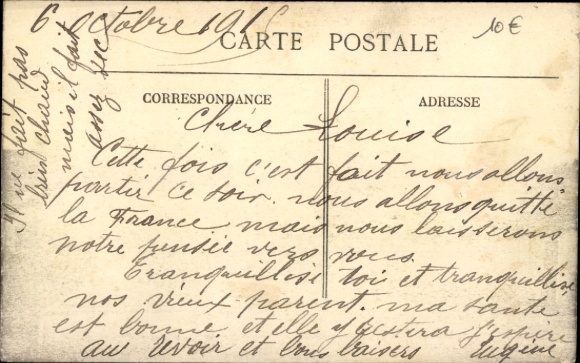 6 Octobre 191
10€
CARTE POSTALE
CORRESPONDANCE
ADRESSE
Chère Louise
Cette fois c'est fait nous allons
partir ce soir. nous allons quitté
la France. mais nous laisserons
notre pensée vers vous.
Tranquillise toi et tranquillise
nos vieux parent. ma sante
est bonne et elle y restera j'espère
au revoir et bons baisers Eugène
Il ne fait pas
très chaud
mais il fait
assez sec